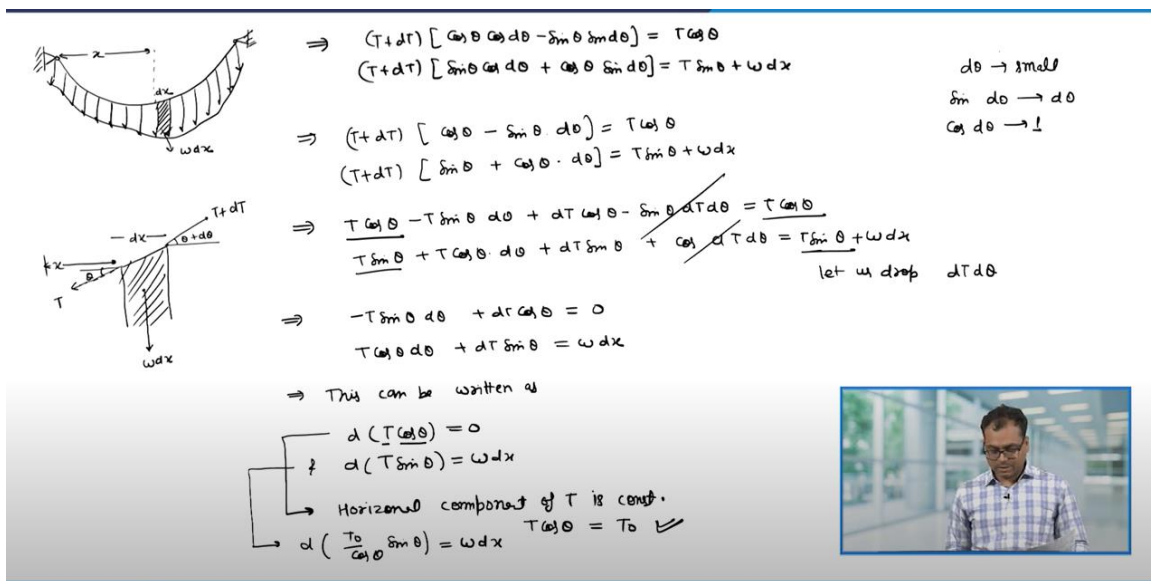 ⇒ (T+dT) [ Cosθ Cosdθ - Sinθ Sindθ] = TCosθ
(T+dT) [ Sinθ Cos dθ + Cosθ Sin dθ] = T Sinθ + ωdx
dθ → small
Sin dθ → dθ
Cos dθ → 1
x
dx
ωdx
⇒ (T+dT) [ Cosθ - Sinθ. dθ] = TCosθ
(T+dT) [ Sinθ + Cosθ. dθ] = TSinθ + ωdx
T+dT
dx
θ+dθ
x
θ
T
ωdx
⇒ T Cosθ - T Sinθ dθ + dT Cosθ - Sinθ dTdθ = T Cosθ
T Sinθ + T Cosθ. dθ + dT Sinθ + Cos dTdθ = TSinθ + ωdx
let us drop dTdθ
⇒ -T Sinθ dθ + dT Cosθ = 0
T Cosθ dθ + dT Sinθ = ωdx
⇒ This can be written as
d (T Cosθ) = 0
& d(T Sinθ) = ωdx
→ Horizonal component of T is const.
TCosθ = T0
→ d ( T0/Cosθ Sinθ) = ωdx